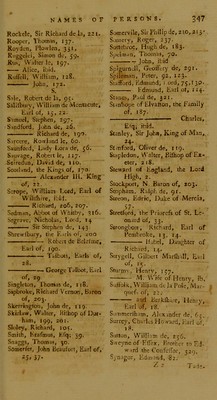 NAMES OF PERSONS. 347
Rockele, Sir Richard de la, 221.
Rooper, Thomas, 137.
Royden, Plowden, 351.
Roggoli, Simon de, 59.
Rus, Walter le, 197.
— Alice, ibid.
Russell, William, 128.
— John, 172.
S.
Sale, Robert de la, 95.
Salisbury, William de Montacute,
Earl of, 15, 21.
Samuel, Stephen, 297.
Sandford, John de, 26.
— Richard de, 190.
Sarcere, Rowland le, 60.
Saunford, Lady Lora de, 56.
Saurage, Robert le, 117.
Servatius, David de, 110.
Scotland, the Kings of, 170.
— Alexander III. King
of, 22.
Scrope, William Lord, Earl of
Wiltshire, ibid.
— Richard, 206, 207.
Sudman, Abbot of Whitby, 216.
Segrave, Nicholas, Lord, 14
— Sir Stephen de, 143
Shrewsbury, the Earls of, 200
— Robert de Belesme,
Earl of, 196.
— Talbots, Earls of,
28.
— George Talbot, Earl
of, 29
Singleton, Thomas de, 118.
Sipbroke, Richard Vernon, Baron
of, 203.
Skerrington, John de, 119.
Skirlaw, Walter, Bishop of Durham,
199, 201.
Sloley, Richard, 105.
Smith, Haffman, Esq; 39.
Snaggs, Thomas, 30.
Somerset, John Beaufort, Earl of,
25, 37.
Somerville, Sir Philip de, 210, 213.
Sawcery, Roger, 137.
Sottebroc, Hugh de, 185.
Spelman, Thomas, 90.
— John, ibid
Spigurnall, Geoffrey de, 291.
Spileman, Peter, 92, 123.
Stafford, Edmund, Earl of, 114.
Stoule, Thomas de, 321.
Stanhope of Elvaston, the Family
of, 187.
— Charles,
Esq; ibid.
Stanley, Sir John, King of Man,
24.
Stanford, Oliver de, 119.
Stapledun, Walter, Bishop of Exeter,
118.
Steward of England, the Lord
High, 2.
Stockport, N. Baron of, 203.
Stopham, Ralph de, 91.
Stretford, the Priorests of St. Leonard
of, 53.
Strongbow, Richard, Earl of
Pembroke, 13, 14.
— Isabel, Daughter of
Richard, 14.
Strygell, Gilbert Marshall, Earl
of, 16.
Sturmy, Henry, 157.
— M. Wife of Henry, ib.
Suffolk, William de la Pole, Marquis
of, 22.
Summersham, Alexander de, 65.
Surrey, Charles Howard, Earl of,
18.
Sutton, William de, 256.
Synagor, Edmund, 82.